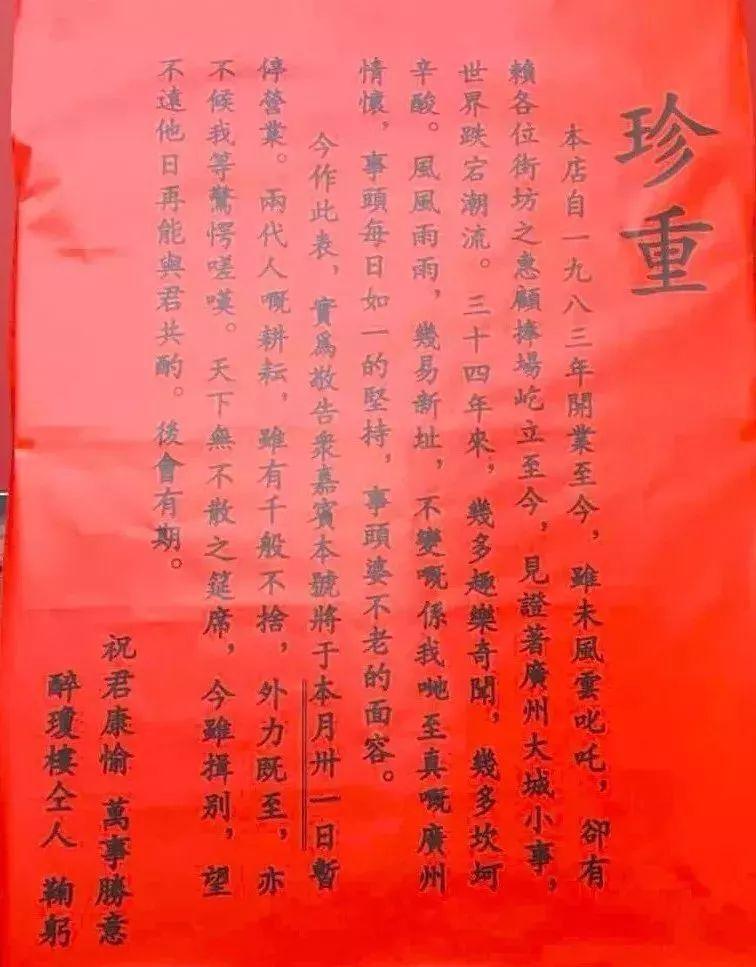 珍重
本店自一九八三年開業至今，雖未風雲叱吒，卻有
賴各位街坊之惠顧捧場屹立至今，見證著廣州大城小事，
世界跌宕潮流。三十四年來，幾多趣樂奇聞，幾多坎坷
辛酸。風風雨雨，幾易新址，不變嘅係我哋至真嘅廣州
情懷，事頭每日如一的堅持，事頭婆不老的面容。
今作此表，實爲敬告衆嘉賓本號將于本月卅一日暫
停營業。兩代人嘅耕耘，雖有千般不捨，外力既至，亦
不候我等驚愕嗟嘆。天下無不散之筵席，今雖揖別，望
不遠他日再能與君共酌。後會有期。
祝君康愉 萬事勝意
醉瓊樓仝人 鞠躬